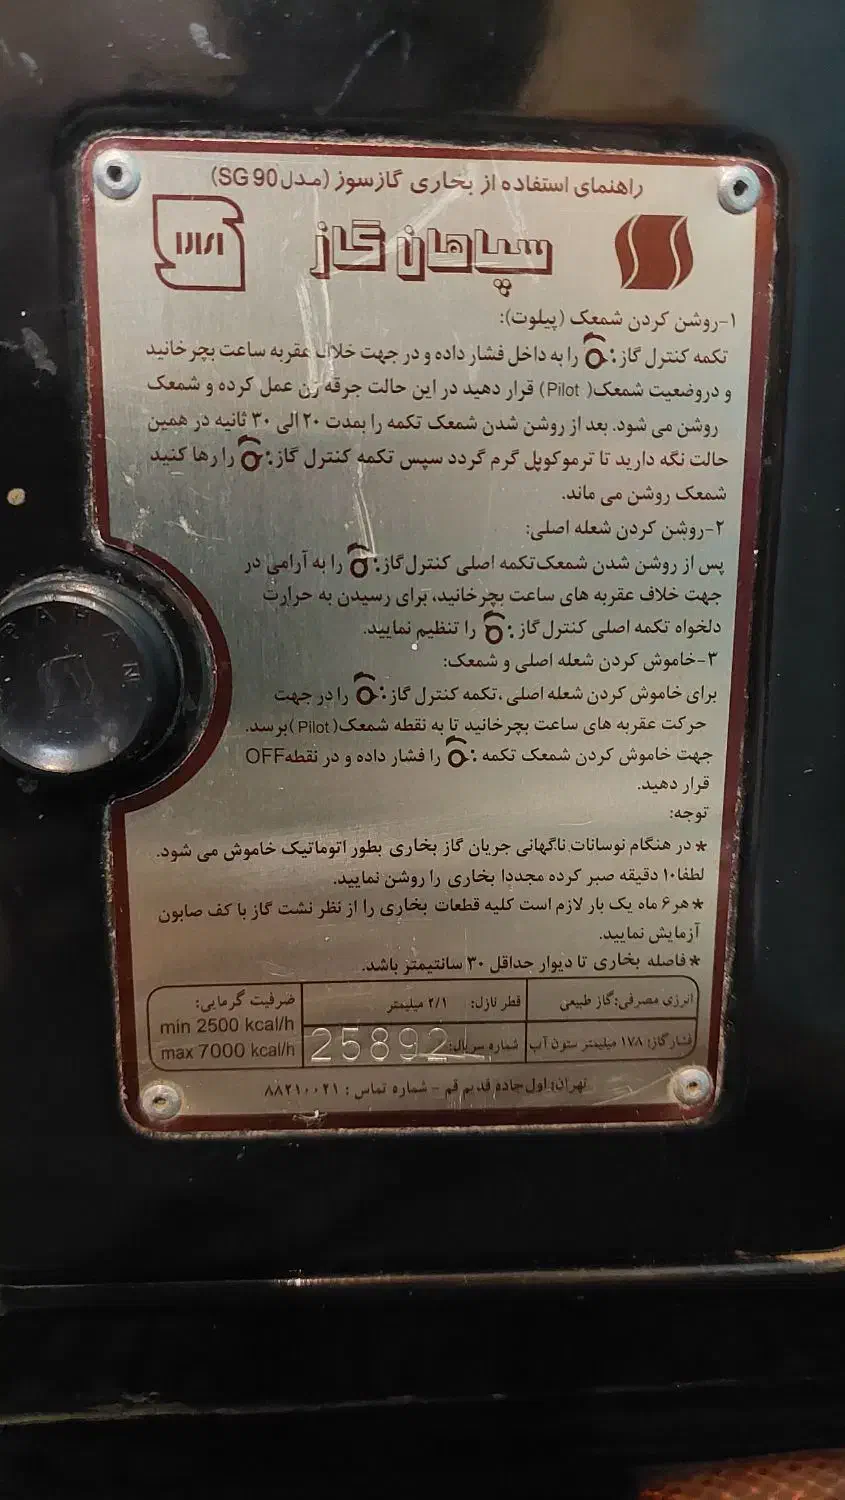 راهنمای استفاده از بخاری گازسوز (مدل SG 90)
سپاهان گاز
۱-روشن کردن شمعک (پیلوت):
تکمه کنترل گاز: را به داخل فشار داده و در جهت خلاف عقربه ساعت بچرخانید
و دروضعیت شمعک( Pilot) قرار دهید در این حالت جرقه زن عمل کرده و شمعک
روشن می شود. بعد از روشن شدن شمعک تکمه را بمدت ۲۰ الی ۳۰ ثانیه در همین
حالت نگه دارید تا ترموکوپل گرم گردد سپس تکمه کنترل گاز: را رها کنید
شمعک روشن می ماند.
۲-روشن کردن شعله اصلی:
پس از روشن شدن شمعک تکمه اصلی کنترل گاز: را به آرامی در
جهت خلاف عقربه های ساعت بچرخانید، برای رسیدن به حرارت
دلخواه تکمه اصلی کنترل گاز: را تنظیم نمایید.
۳-خاموش کردن شعله اصلی و شمعک:
برای خاموش کردن شعله اصلی ،تکمه کنترل گاز: را در جهت
حرکت عقربه های ساعت بچرخانید تا به نقطه شمعک( Pilot)برسد.
جهت خاموش کردن شمعک تکمه : را فشار داده و در نقطه OFF
قرار دهید.
توجه:
* در هنگام نوسانات ناگهانی جریان گاز بخاری بطور اتوماتیک خاموش می شود.
لطفا ۱۰ دقیقه صبر کرده مجددا بخاری را روشن نمایید.
* هر ۶ ماه یک بار لازم است کلیه قطعات بخاری را از نظر نشت گاز با کف صابون
آزمایش نمایید.
* فاصله بخاری تا دیوار حداقل ۳۰ سانتیمتر باشد.
انرژی مصرفی: گاز طبیعی
قطر نازل: ۲/۱ میلیمتر
ظرفیت گرمایی:
min 2500 kcal/h
max 7000 kcal/h
فشار گاز: ۱۷۸ میلیمتر ستون آب
شماره سریال: 25892
تهران: اول جاده قدیم قم - شماره تماس : ۸۸۲۱۰۰۲۱